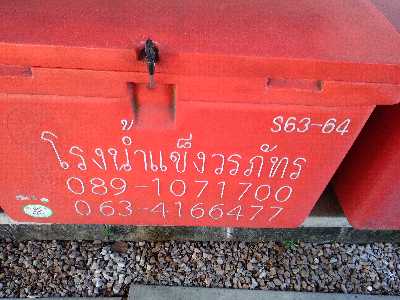 S63-64
โรงน้ำแข็งวรภัทร
089-1071700
063-4166477